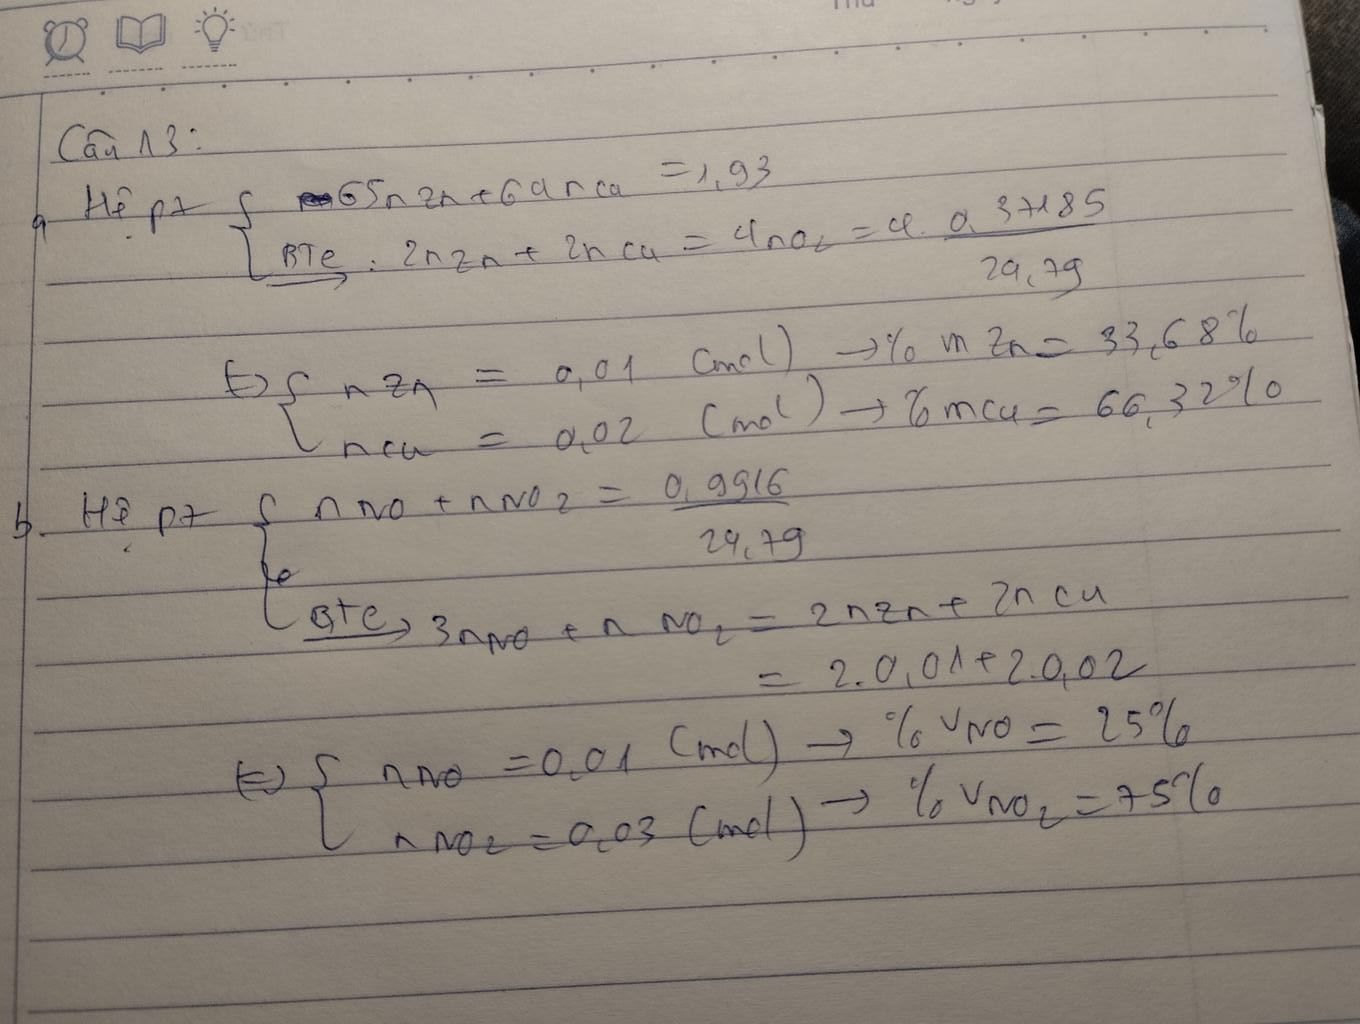 Câu 13:
a Hệ pt { 65nZn + 64nCu = 1,93
BTe : 2nZn + 2nCu = 4nO2 = 4. 0,37185 / 24,79
<=> { nZn = 0,01 (mol) → % mZn = 33,68%
nCu = 0,02 (mol) → % mCu = 66,32%
b. Hệ pt { nNO + nNO2 = 0,9916 / 24,79
BTe → 3nNO + nNO2 = 2nZn + 2nCu
= 2.0,01 + 2.0,02
<=> { nNO = 0,01 (mol) → % VNO = 25%
nNO2 = 0,03 (mol) → % VNO2 = 75%